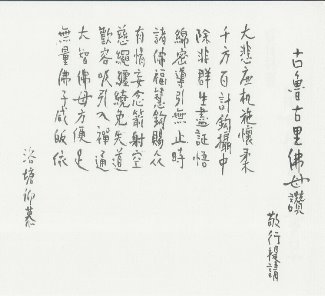 古魯古里佛母讚
敬行請
大悲應机施懷柔
千方百計鉤攝中
除非群生盡証悟
綿密導引無止時
諸佛福慧鉤賜眾
有情妄念箭射空
慈繩纏繞免失道
歡容吸引入禪通
大智佛母方便足
無量佛子咸皈依
浴塘仰慕